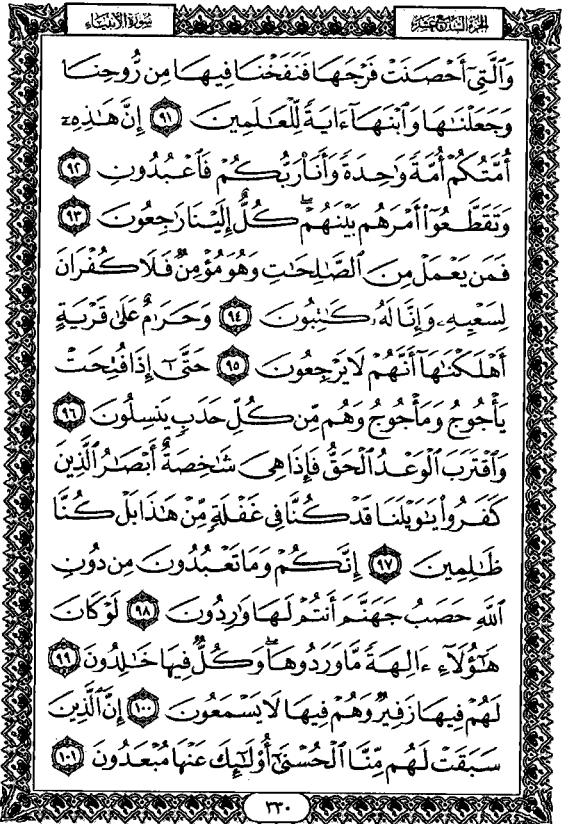 سُورَةُ الأَنْبِيَاءِ الجُزْءُ السَّابِعَ عَشَرَ
وَٱلَّتِىٓ أَحْصَنَتْ فَرْجَهَا فَنَفَخْنَا فِيهَا مِن رُّوحِنَا
وَجَعَلْنَٰهَا وَٱبْنَهَآ ءَايَةً لِّلْعَٰلَمِينَ ٩١ إِنَّ هَٰذِهِۦٓ
أُمَّتُكُمْ أُمَّةً وَٰحِدَةً وَأَنَا۠ رَبُّكُمْ فَٱعْبُدُونِ ٩٢
وَتَقَطَّعُوٓا۟ أَمْرَهُم بَيْنَهُمْ ۖ كُلٌّ إِلَيْنَا رَٰجِعُونَ ٩٣
فَمَن يَعْمَلْ مِنَ ٱلصَّٰلِحَٰتِ وَهُوَ مُؤْمِنٌ فَلَا كُفْرَانَ
لِسَعْيِهِۦ وَإِنَّا لَهُۥ كَٰتِبُونَ ٩٤ وَحَرَٰمٌ عَلَىٰ قَرْيَةٍ
أَهْلَكْنَٰهَآ أَنَّهُمْ لَا يَرْجِعُونَ ٩٥ حَتَّىٰٓ إِذَا فُتِحَتْ
يَأْجُوجُ وَمَأْجُوجُ وَهُم مِّن كُلِّ حَدَبٍ يَنسِلُونَ ٩٦
وَٱقْتَرَبَ ٱلْوَعْدُ ٱلْحَقُّ فَإِذَا هِىَ شَٰخِصَةٌ أَبْصَٰرُ ٱلَّذِينَ
كَفَرُوا۟ يَٰوَيْلَنَا قَدْ كُنَّا فِى غَفْلَةٍ مِّنْ هَٰذَا بَلْ كُنَّا
ظَٰلِمِينَ ٩٧ إِنَّكُمْ وَمَا تَعْبُدُونَ مِن دُونِ
ٱللَّهِ حَصَبُ جَهَنَّمَ أَنتُمْ لَهَا وَٰرِدُونَ ٩٨ لَوْ كَانَ
هَٰٓؤُلَآءِ ءَالِهَةً مَّا وَرَدُوهَا ۖ وَكُلٌّ فِيهَا خَٰلِدُونَ ٩٩
لَهُمْ فِيهَا زَفِيرٌ وَهُمْ فِيهَا لَا يَسْمَعُونَ ١٠٠ إِنَّ ٱلَّذِينَ
سَبَقَتْ لَهُم مِّنَّا ٱلْحُسْنَىٰٓ أُو۟لَٰٓئِكَ عَنْهَا مُبْعَدُونَ ١٠١
٣٣٠